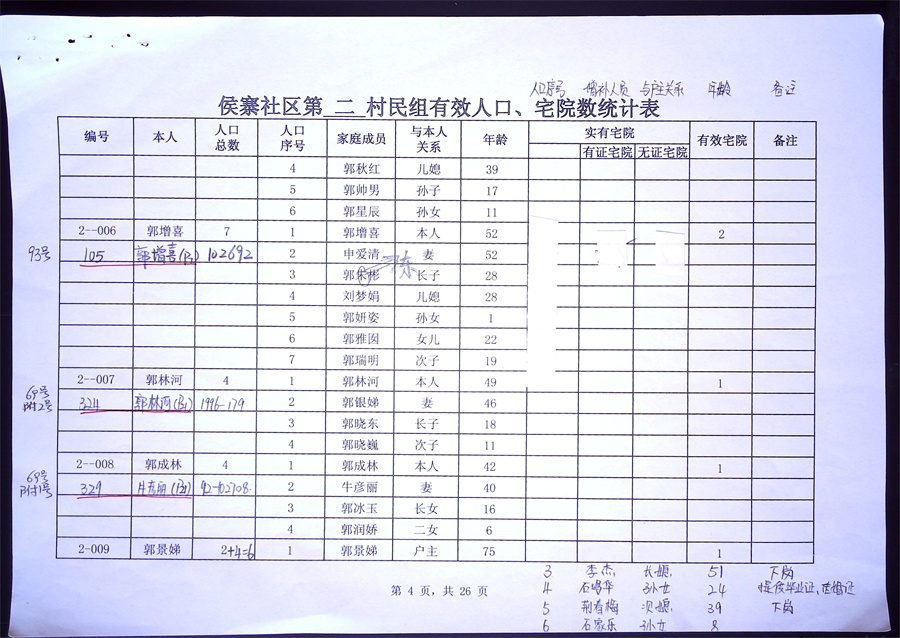 人口序号 增补人员 与户主关系 年龄 备注
侯寨社区第 二 村民组有效人口、宅院数统计表
编号 本人 人口总数 人口序号 家庭成员 与本人关系 年龄 实有宅院 有效宅院 备注
有证宅院 无证宅院
4 郭秋红 儿媳 39
5 郭帅男 孙子 17
6 郭星辰 孙女 11
2--006 郭增喜 7 1 郭增喜 本人 52 2
93号 105 郭增喜 102692 2 申爱清 妻 52
3 郭东彬 长子 28
东
4 刘梦娟 儿媳 28
5 郭妍姿 孙女 1
6 郭雅囡 女儿 22
7 郭瑞明 次子 19
2--007 郭林河 4 1 郭林河 本人 49 1
69号附2号 324 郭林河 1996-179 2 郭银娣 妻 46
3 郭晓东 长子 18
4 郭晓巍 次子 11
2--008 郭成林 4 1 郭成林 本人 42 1
69号附1号 329 牛彦丽 92-102708 2 牛彦丽 妻 40
3 郭冰玉 长女 16
4 郭润娇 二女 6
2-009 郭景娣 2+4=6 1 郭景娣 户主 75 1
3 李杰 长媳 51 下岗
4 石鸣华 孙女 24
5 荆春梅 次媳 39 下岗
6 石家乐 孙女 8
第 4 页，共 26 页